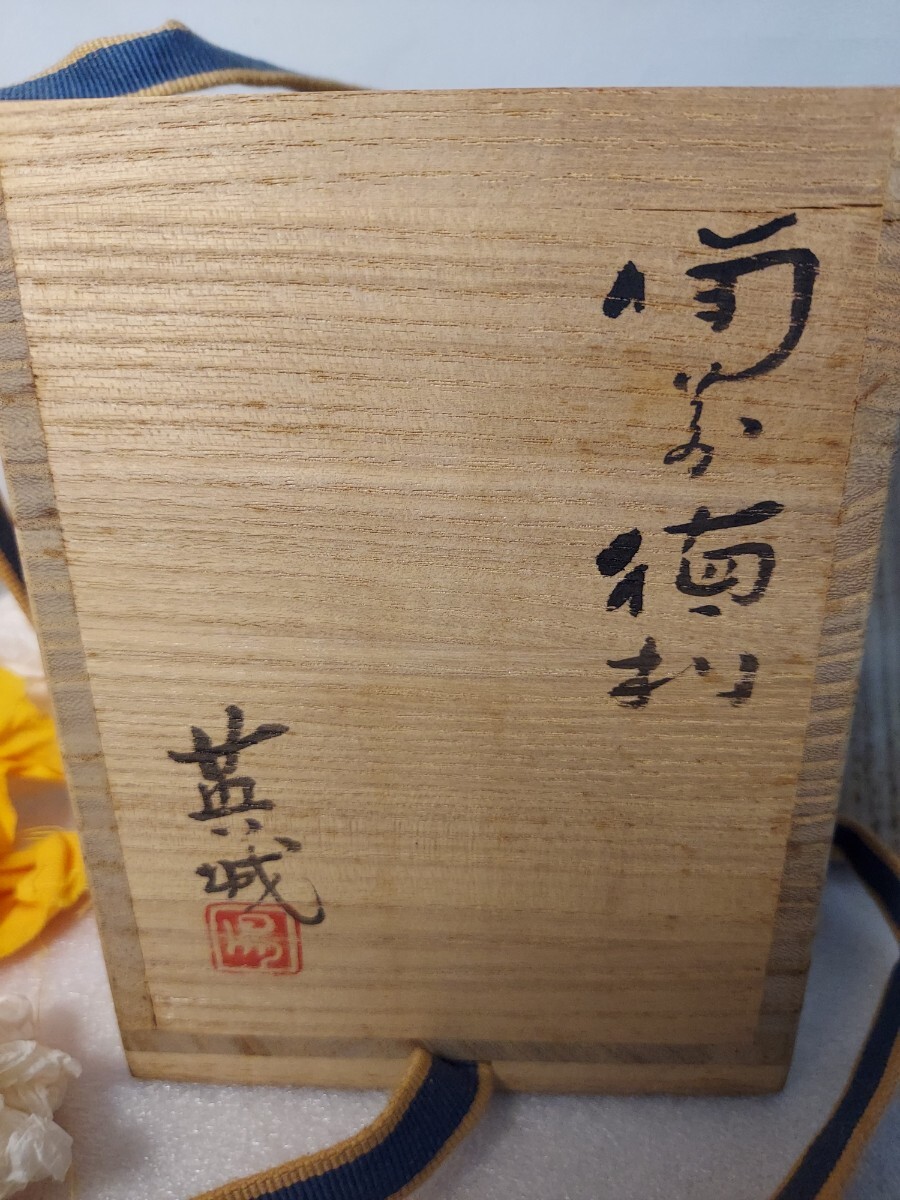 備前徳利
英城